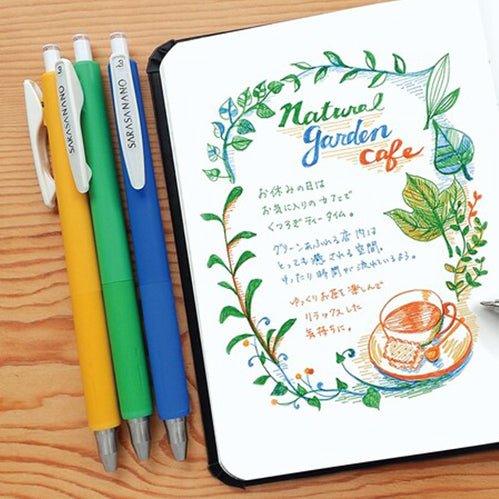 SARASA NANO
SARASA NANO
0.3
Natural
garden
cafe
お休みの日は
お気に入りのカフェで
くつろぎティータイム。
グリーンあふれる店内は
とっても癒される空間。
ゆったり時間が流れているよう。
ゆっくりお茶を楽しんで
リラックスした
気持ちに。